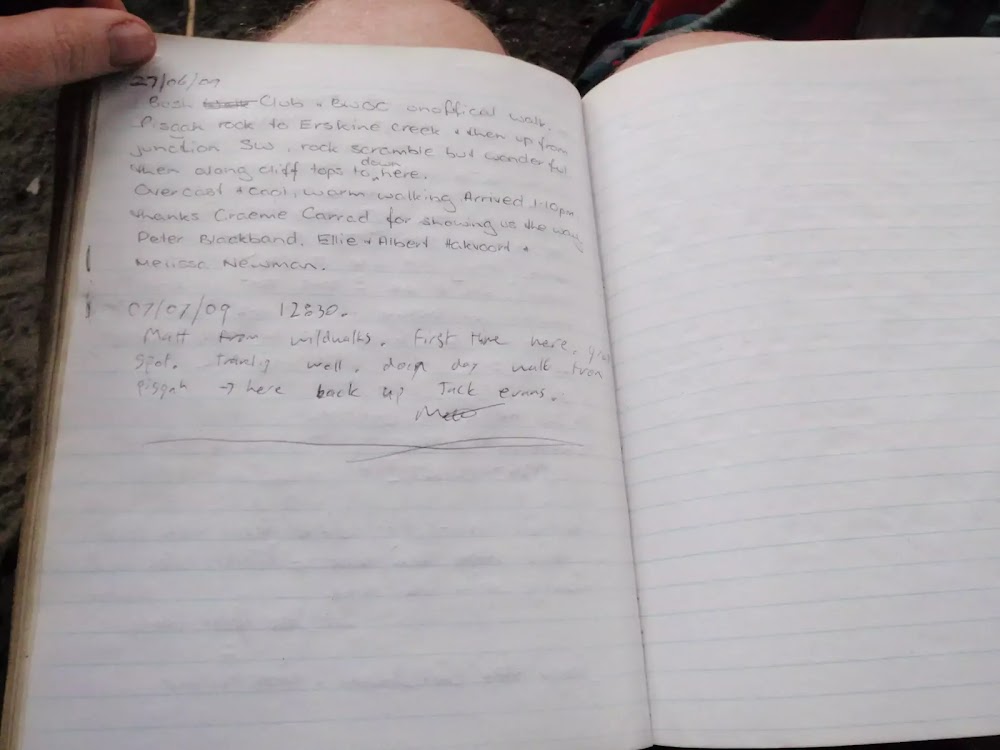 27/06/09
Bush Club + BWOC unoffical walk.
Pisgah rock to Erskine Creek + then up from
junction SW, rock scramble but wonderful
then along cliff tops to down here.
Overcast + cool, warm walking Arrived 1.10pm
thanks Graeme Carrad for showing us the way
Peter Blackband, Ellie + Albert Hakvoort +
Melissa Newman.
07/07/09 12:30.
Matt from wildwalks. First time here,
Spot. well. day walk from
pisgah → here back up Jack evans.